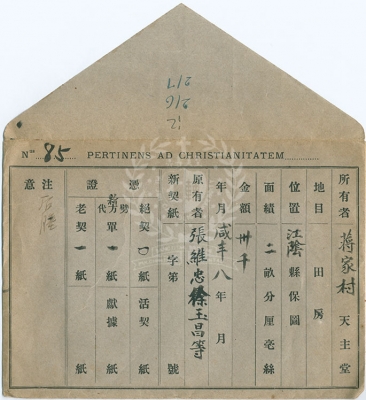 12
2/6
2/7
Nus 85. PERTINENS AD CHRISTIANITATEM
所有者 蔣家村 天主堂
地目 田房
位置 江陰縣保圖
面積 二畝分厘毫絲
金額 卅千
年月 咸丰八年 月
原有者 張維忠 徐玉昌等
新契紙 字第 號
憑證
絕契一〇紙 活契 紙
方單一紙 獻據 紙
老契一紙 紙
注意